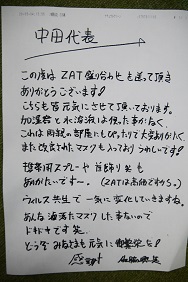 中田代表
この度はZAT盛り合わせを送って頂き
ありがとうございます!
こちらも皆元気にさせて頂いております。
加湿器で水溶液は使った事がなく、
これは両親の部屋にもぴったりで大変ありがたく
また改良されたマスクも入っておりうれしいです!
携帯用スプレーや首飾り笑も
ありがたいです〜。(ZATは高価ですから。)
ウィルス先生で一気に変化していきますね。
あんな洒落たマスクした事ないので
ドキドキです笑。
どうかみなさまも元気に御繁栄を!
感謝